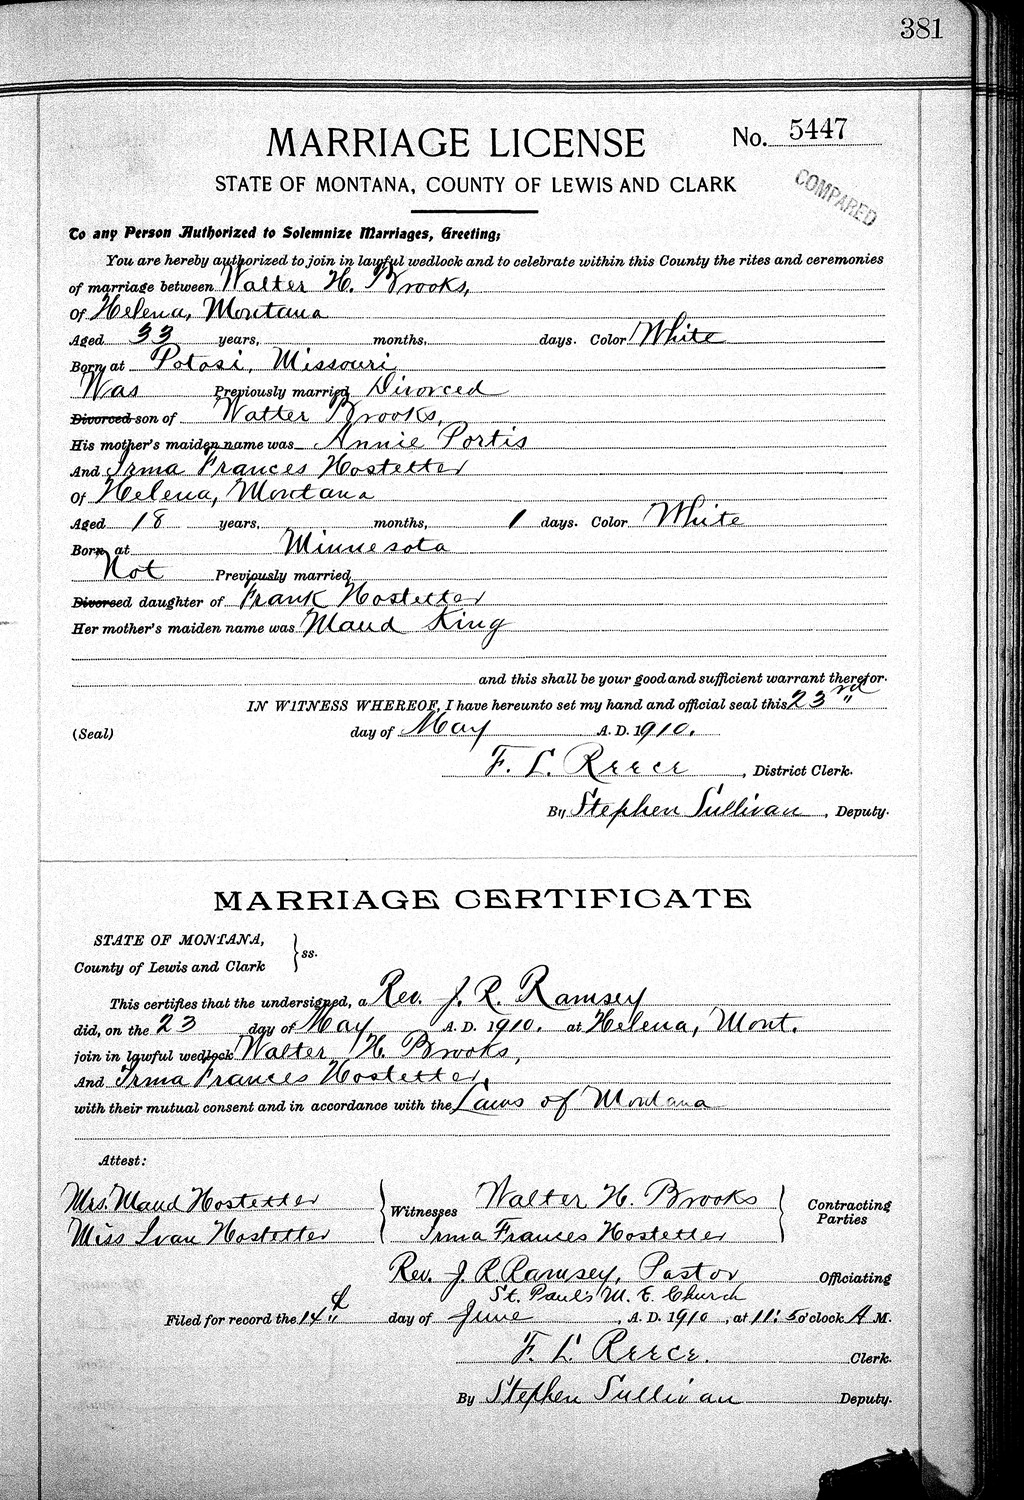 381
MARRIAGE LICENSE No. 5447
STATE OF MONTANA, COUNTY OF LEWIS AND CLARK
COMPARED
To any Person Authorized to Solemnize Marriages, Greeting;
You are hereby authorized to join in lawful wedlock and to celebrate within this County the rites and ceremonies
of marriage between Walter H. Brooks,
Of Helena, Montana
Aged 33 years, months, days. Color White
Born at Potosi, Missouri
Was Previously married Divorced
Divorced son of Walter Brooks,
His mother's maiden name was Annie Portis
And Irma Frances Hostetter
Of Helena, Montana
Aged 18 years, months, 1 days. Color White
Born at Minnesota
Not Previously married
Divorced daughter of Frank Hostetter
Her mother's maiden name was Maud King
and this shall be your good and sufficient warrant therefor.
IN WITNESS WHEREOF, I have hereunto set my hand and official seal this 23rd
(Seal) day of May A. D. 1910.
F. L. Reece, District Clerk.
By Stephen Sullivan, Deputy.
MARRIAGE CERTIFICATE
STATE OF MONTANA,
County of Lewis and Clark } ss.
This certifies that the undersigned, a Rev. J. R. Ramsey
did, on the 23 day of May A. D. 1910. at Helena, Mont.
join in lawful wedlock Walter H. Brooks,
And Irma Frances Hostetter,
with their mutual consent and in accordance with the Laws of Montana
Attest:
Mrs. Maud Hostetter } Witnesses Walter H. Brooks } Contracting Parties
Miss Ivan Hostetter Irma Frances Hostetter
Rev. J. R. Ramsey, Pastor Officiating
St. Paul's M. E. Church
Filed for record the 14th day of June, A. D. 1910, at 11:5 o'clock A M.
F. L. Reece. Clerk.
By Stephen Sullivan Deputy.